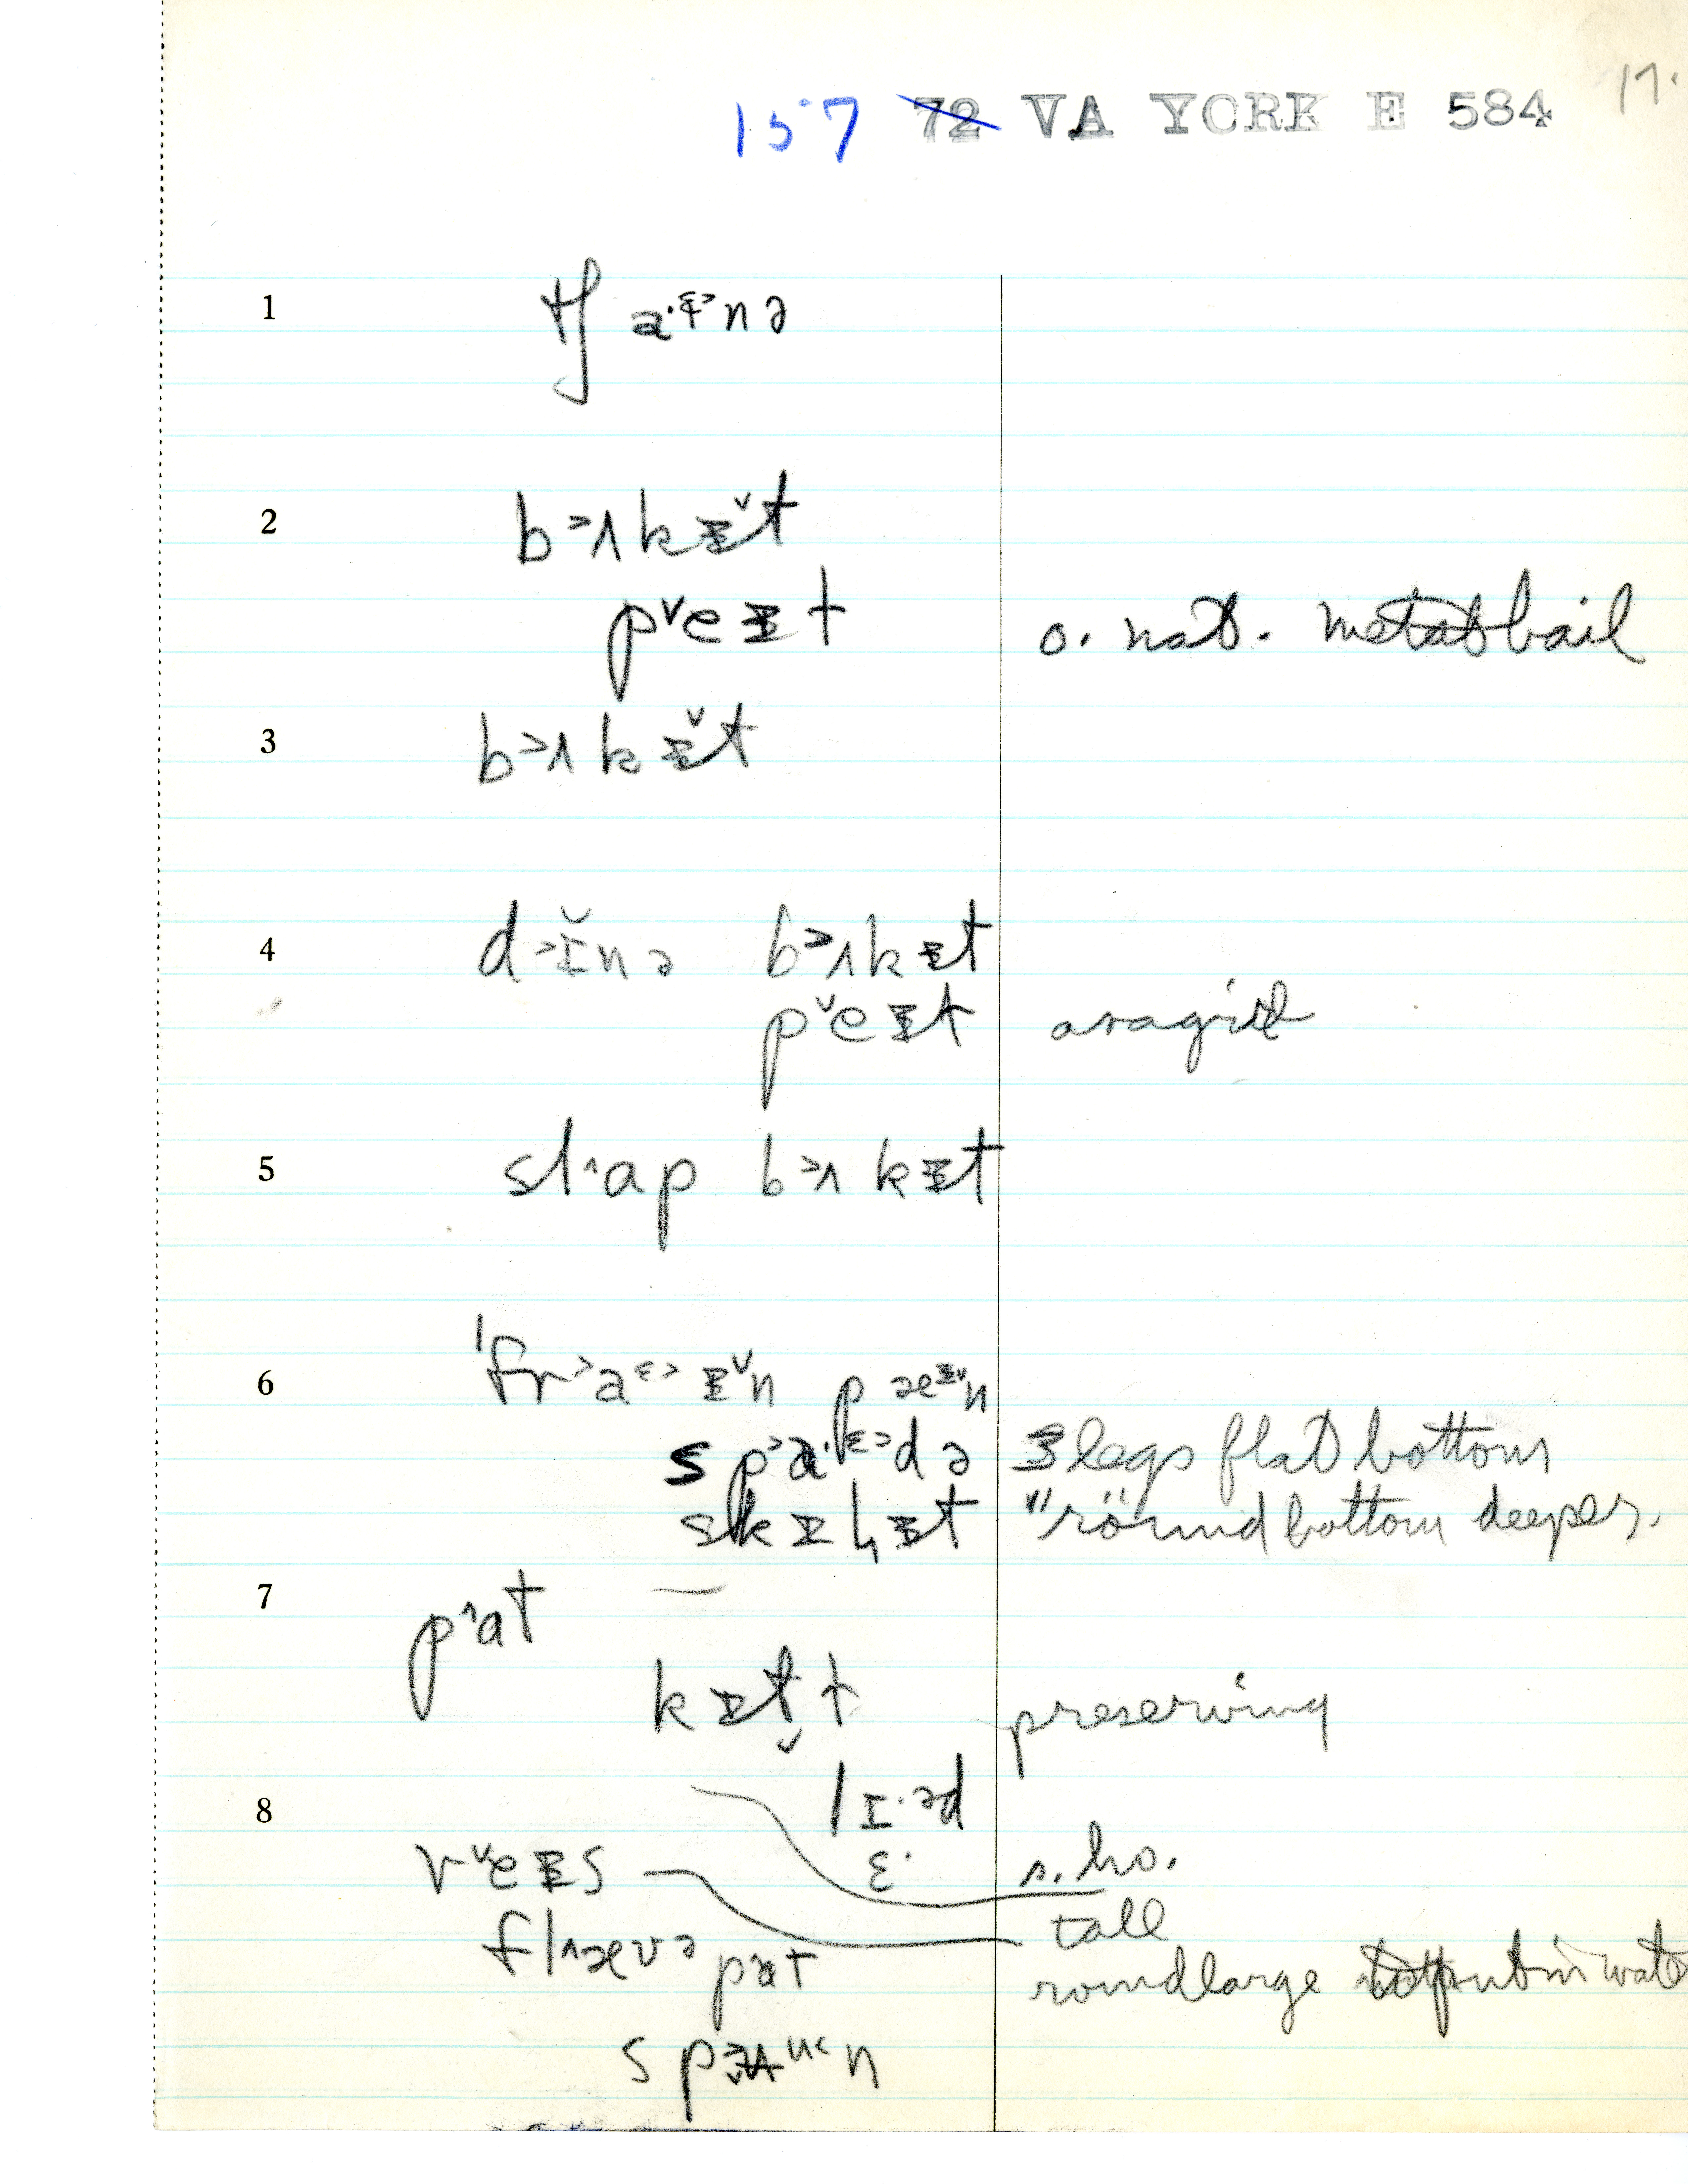 157 72 VA YORK E 584 17.
1 tʃ a·ɨ˃nə
2 b˃ʌkᵻ̌t
pˇeᵻt o. nat. metal bail
3 b˃ʌkᵻ̌t
4 d˃ɪ̆nə b˃ʌkᵻt
pˇeᵻt aragid
5 sl˄ap b˃ʌkᵻt
6 ˈfr˃aᵋ˃ᵻˇn pæᵻˇn
sp˃a·ᵋ˃də 3 legs flat bottom
skᵻlᵻt " round bottom deeper.
7 p˄at
kᵻtɫ preserving
8 lɪ·əd
vˇeᵻs ɛ· s. ho.
tall
fl˄ævə p˄at round large to put in wate
sp ᵘ˂n